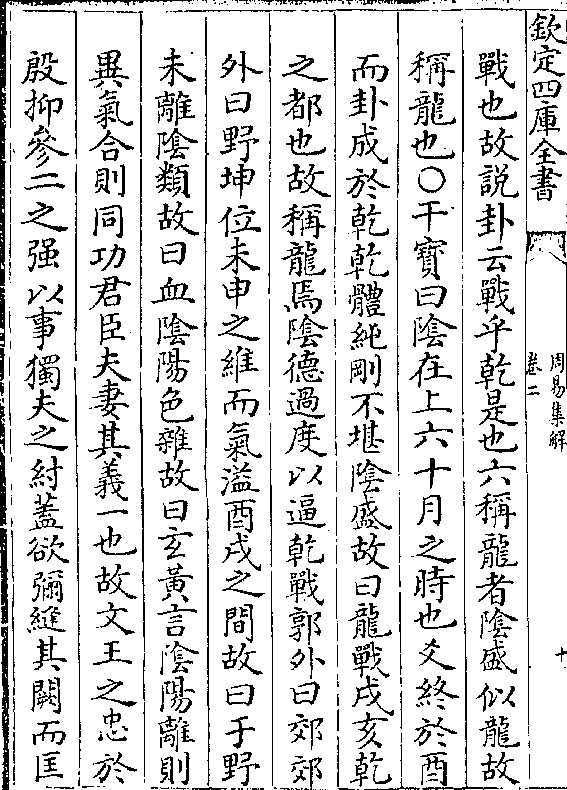 欽定四庫全書
周易集解
卷二
十
戰也故說卦云戰乎乾是也六稱龍者陰盛似龍故
稱龍也〇干寶曰陰在上六十月之時也爻終於酉
而卦成於乾乾體純剛不堪陰盛故曰龍戰戌亥乾
之都也故稱龍焉陰德過度以逼乾戰郭外曰郊郊
外曰野坤位未申之維而氣溢酉戌之間故曰于野
未離陰類故曰血陰陽色雜故曰玄黃言陰陽離則
異氣合則同功君臣夫妻其義一也故文王之忠於
殷抑參二之强以事獨夫之紂蓋欲彌縫其闕而匡